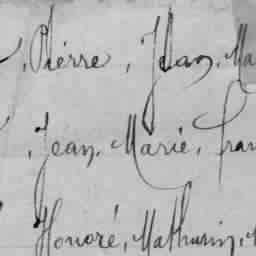 , Pierre, Jean, Ma
, Jean, Marie, Fran
Honoré, Mathurin,